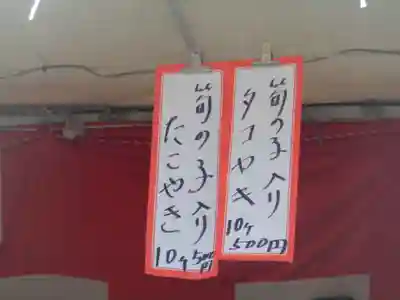 筍の子入り
タコヤキ
10ケ
500円
筍の子入り
たこやき
10ケ500円